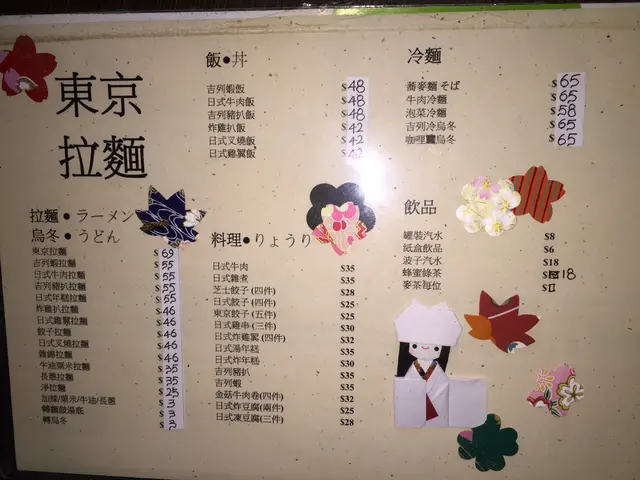 東京
拉麵
飯●丼
吉列蝦飯 $48
日式牛肉飯 $48
吉列豬扒飯 $48
炸雞扒飯 $42
日式叉燒飯 $42
日式雞翼飯 $42
冷麵
蕎麥麵 そば $65
牛肉冷麵 $65
泡菜冷麵 $58
吉列冷烏冬 $65
咖哩 烏冬 $65
拉麵 ● ラーメン
烏冬 ● うどん
東京拉麵 $69
吉列蝦拉麵 $55
日式牛肉拉麵 $55
吉列豬扒拉麵 $55
日式年糕拉麵 $55
炸雞扒拉麵 $46
日式雞翼拉麵 $46
餃子拉麵 $46
日式叉燒拉麵 $46
雜錦拉麵 $46
牛油粟米拉麵 $35
長蔥拉麵 $35
淨拉麵 $25
加辣/粟米/牛油/長蔥 $3
轉麵豉湯底 $3
轉烏冬 $3
料理●りょうり
日式牛肉 $35
日式雜煮 $35
芝士餃子 (四件) $28
日式餃子 (四件) $25
東京餃子 (五件) $25
日式雞串 (三件) $30
日式炸雞翼 (四件) $32
日式湯年糕 $35
日式炸年糕 $30
吉列豬扒 $35
吉列蝦 $35
金菇牛肉卷 (四件) $32
日式炸豆腐 (兩件) $25
日式凍豆腐 (三件) $28
飲品
罐裝汽水 $8
紙盒飲品 $6
波子汽水 $18
蜂蜜綠茶 $ 18
麥茶每位 $